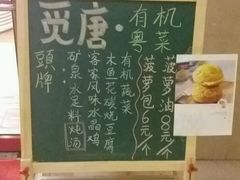 觅唐·有机粤菜
頭牌
矿泉水足料炖汤
客家风味水晶鸡
木鱼花碳烧豆腐
有机蔬菜
菠萝包6元个
菠萝油8元个